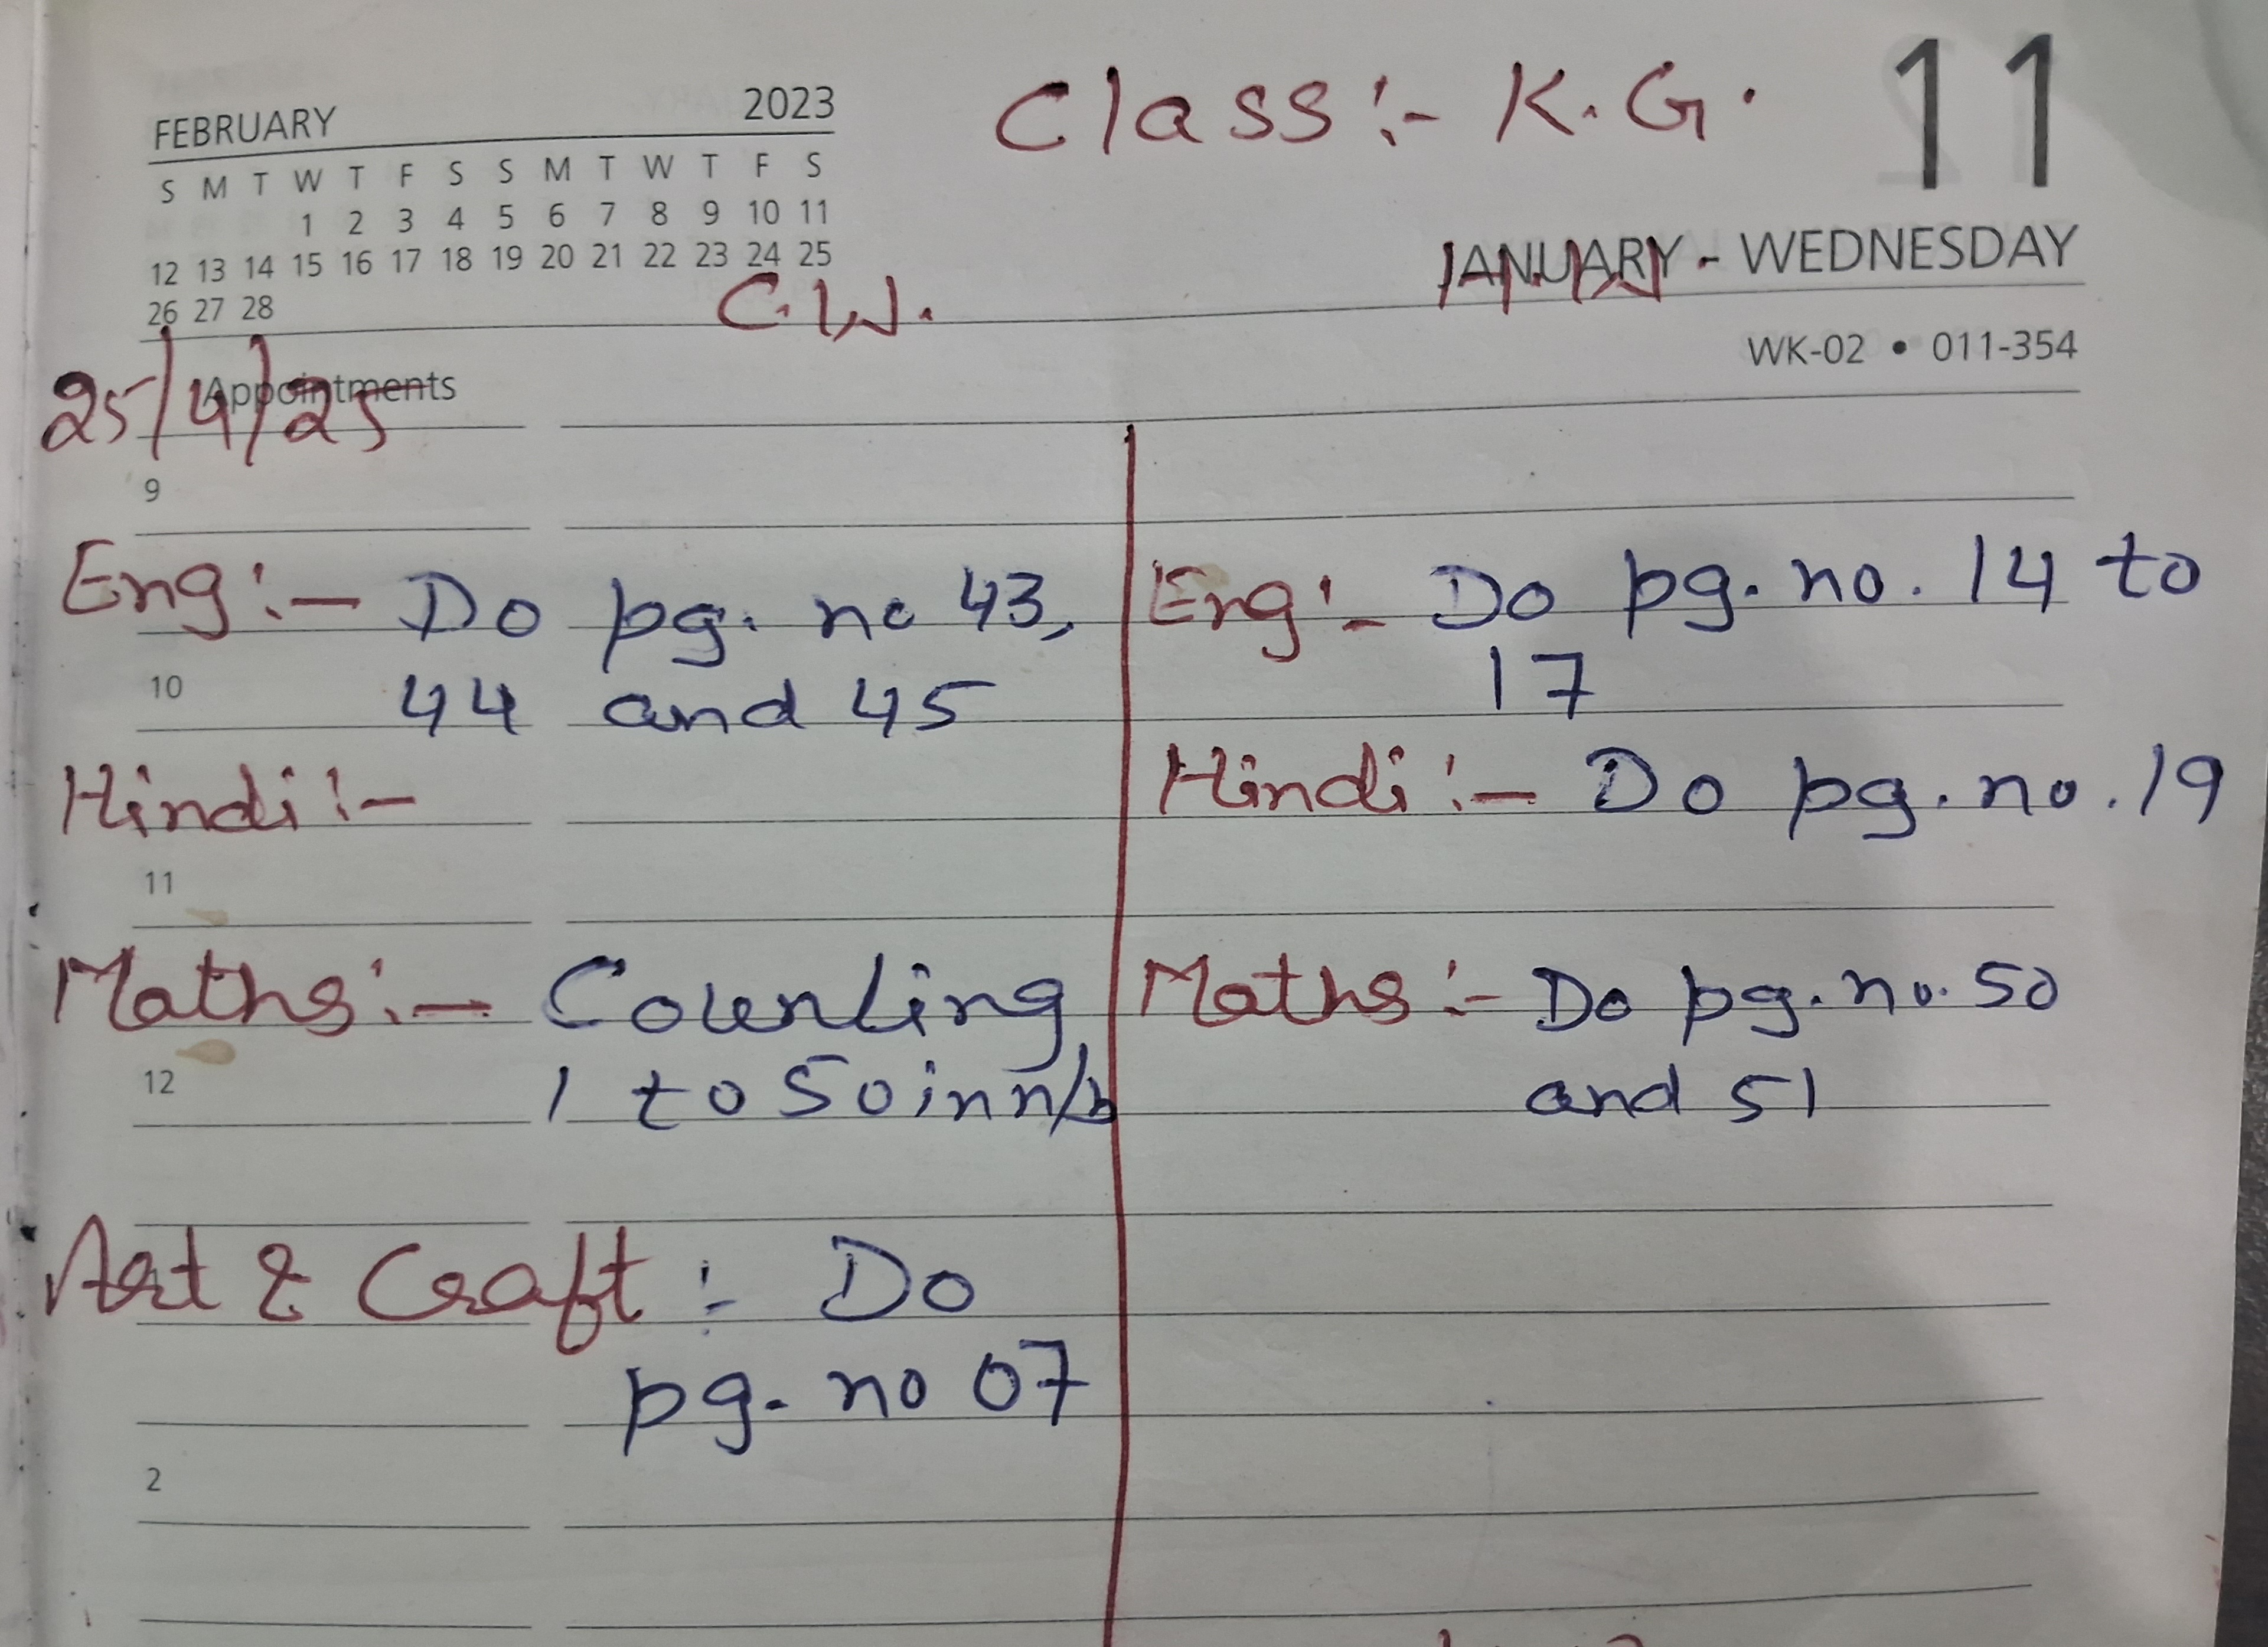 Class:- K.G.
11
FEBRUARY 2023
S M T W T F S S M T W T F S
1 2 3 4 5 6 7 8 9 10 11
12 13 14 15 16 17 18 19 20 21 22 23 24 25
26 27 28
JANUARY - WEDNESDAY
C.W.
H.W.
WK-02 • 011-354
Appointments
25/4/25
9
Eng:- Do pg. no 43,
44 and 45
10
Hindi:-
11
Maths:- Counting
1 to 50 in n/b
12
Art & Craft:- Do
pg. no 07
2
Eng:- Do pg. no. 14 to
17
Hindi:- Do pg. no. 19
Maths:- Do pg. no. 50
and 51